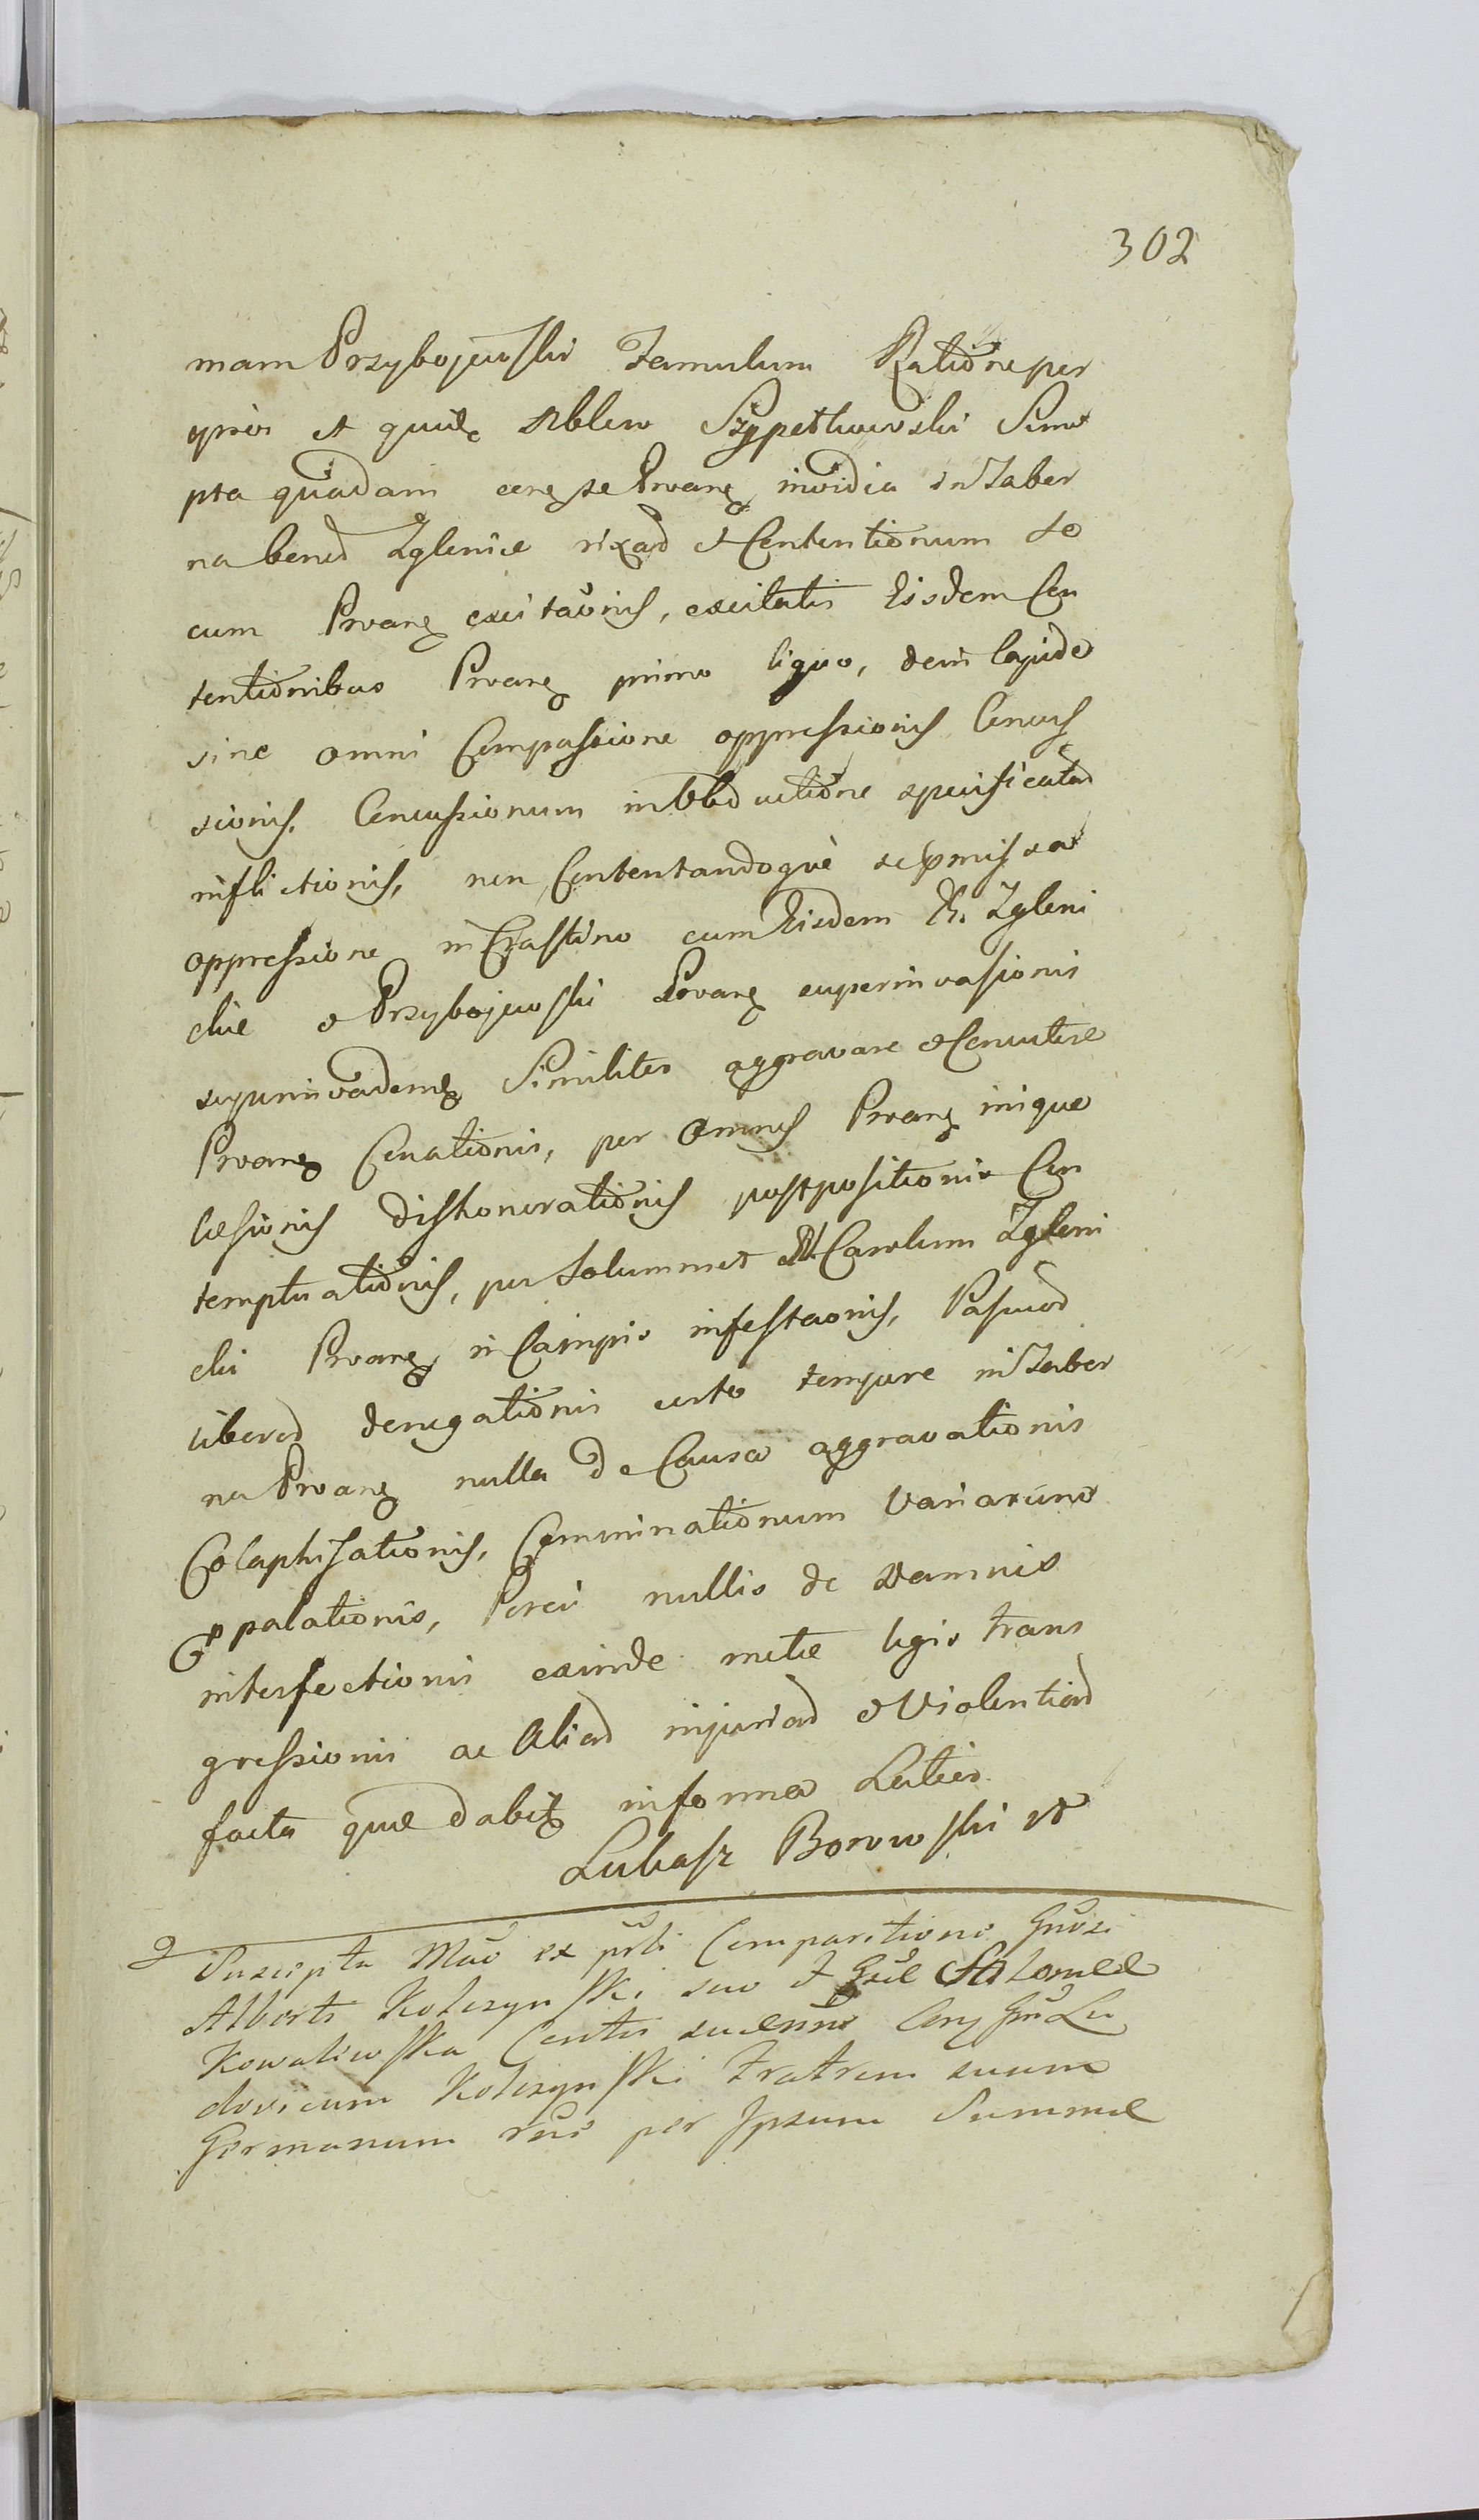 302
mam Przybojewski Famulum Ratione per
ipsos et quide Nblem Szypetkowski Sum
pta quadam erg se Prbang invidia in Taber
na bonor Zglenice rixar et Contentionum se
cum Prbang excitaonis, excitatis Eisdem Con
tentionibus Prbang primo ligno, dein lapide
sine omni Compassione oppressionis Concus
sionis, Concussionum in Obductione specificatar
inflictionis, non Contentandoque se pmissa
oppressione in Crastino cum Eisdem N. Zgleni
ckie et Przybojewski Prbang superinvasionis
superinvadenq Similiter aggravare et Concutere
Prbang Conationis, per Omnes Prbang inique
laesionis dishonorationis postpositionis Con
temptuationis, per Solummet N Carolum Zgleni
cki Prbang in Campis infestaonis, Pascuor
liberor denegationis certo tempore in Taber
na Prbang nulla de Causa aggravationis
Colaphisationis, Comminationum Variarum
Eppalationis, Porci nullis de Damnis
interfectionis exinde metae legis trans
gressionis ac Aliar injuriar et Violentiar
facta quae dabit in forma Latior
Lukasz Borowski
Suscepta Mao ex psti Comparitione Gnosi
Alberti Kolczynski suo et Gsae Salomeae
Kowalewska Contis suae nnie Conj Gm Lu
dovicum Kolczynski Fratrem suum
Germanum rne per Ipsum Summae